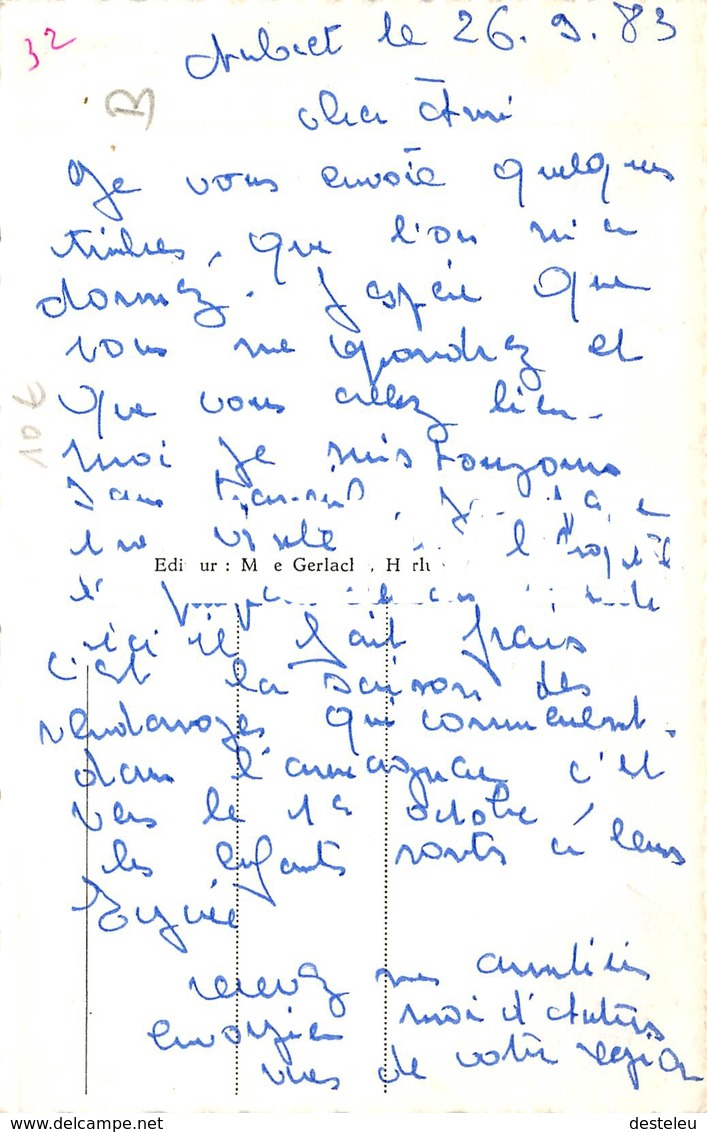 32
Aubiet le 26.9.83
B
cher Ami
Je vous envoie quelques
timbres, que l'on m'a
donnez. J'espère que
vous me repondrez et
que vous allez bien.
10€
moi je suis toujours
dans
une visite
Gerlach
ici il fait frais
c'est la saison des
vendanges qui commencent.
dans l'armagnac c'est
vers le 1er octobre,
les enfants sonts à leurs
recevez mes amitiés
envoyiez moi d'autres
vues de votre region
www.delcampe.net
desteleu